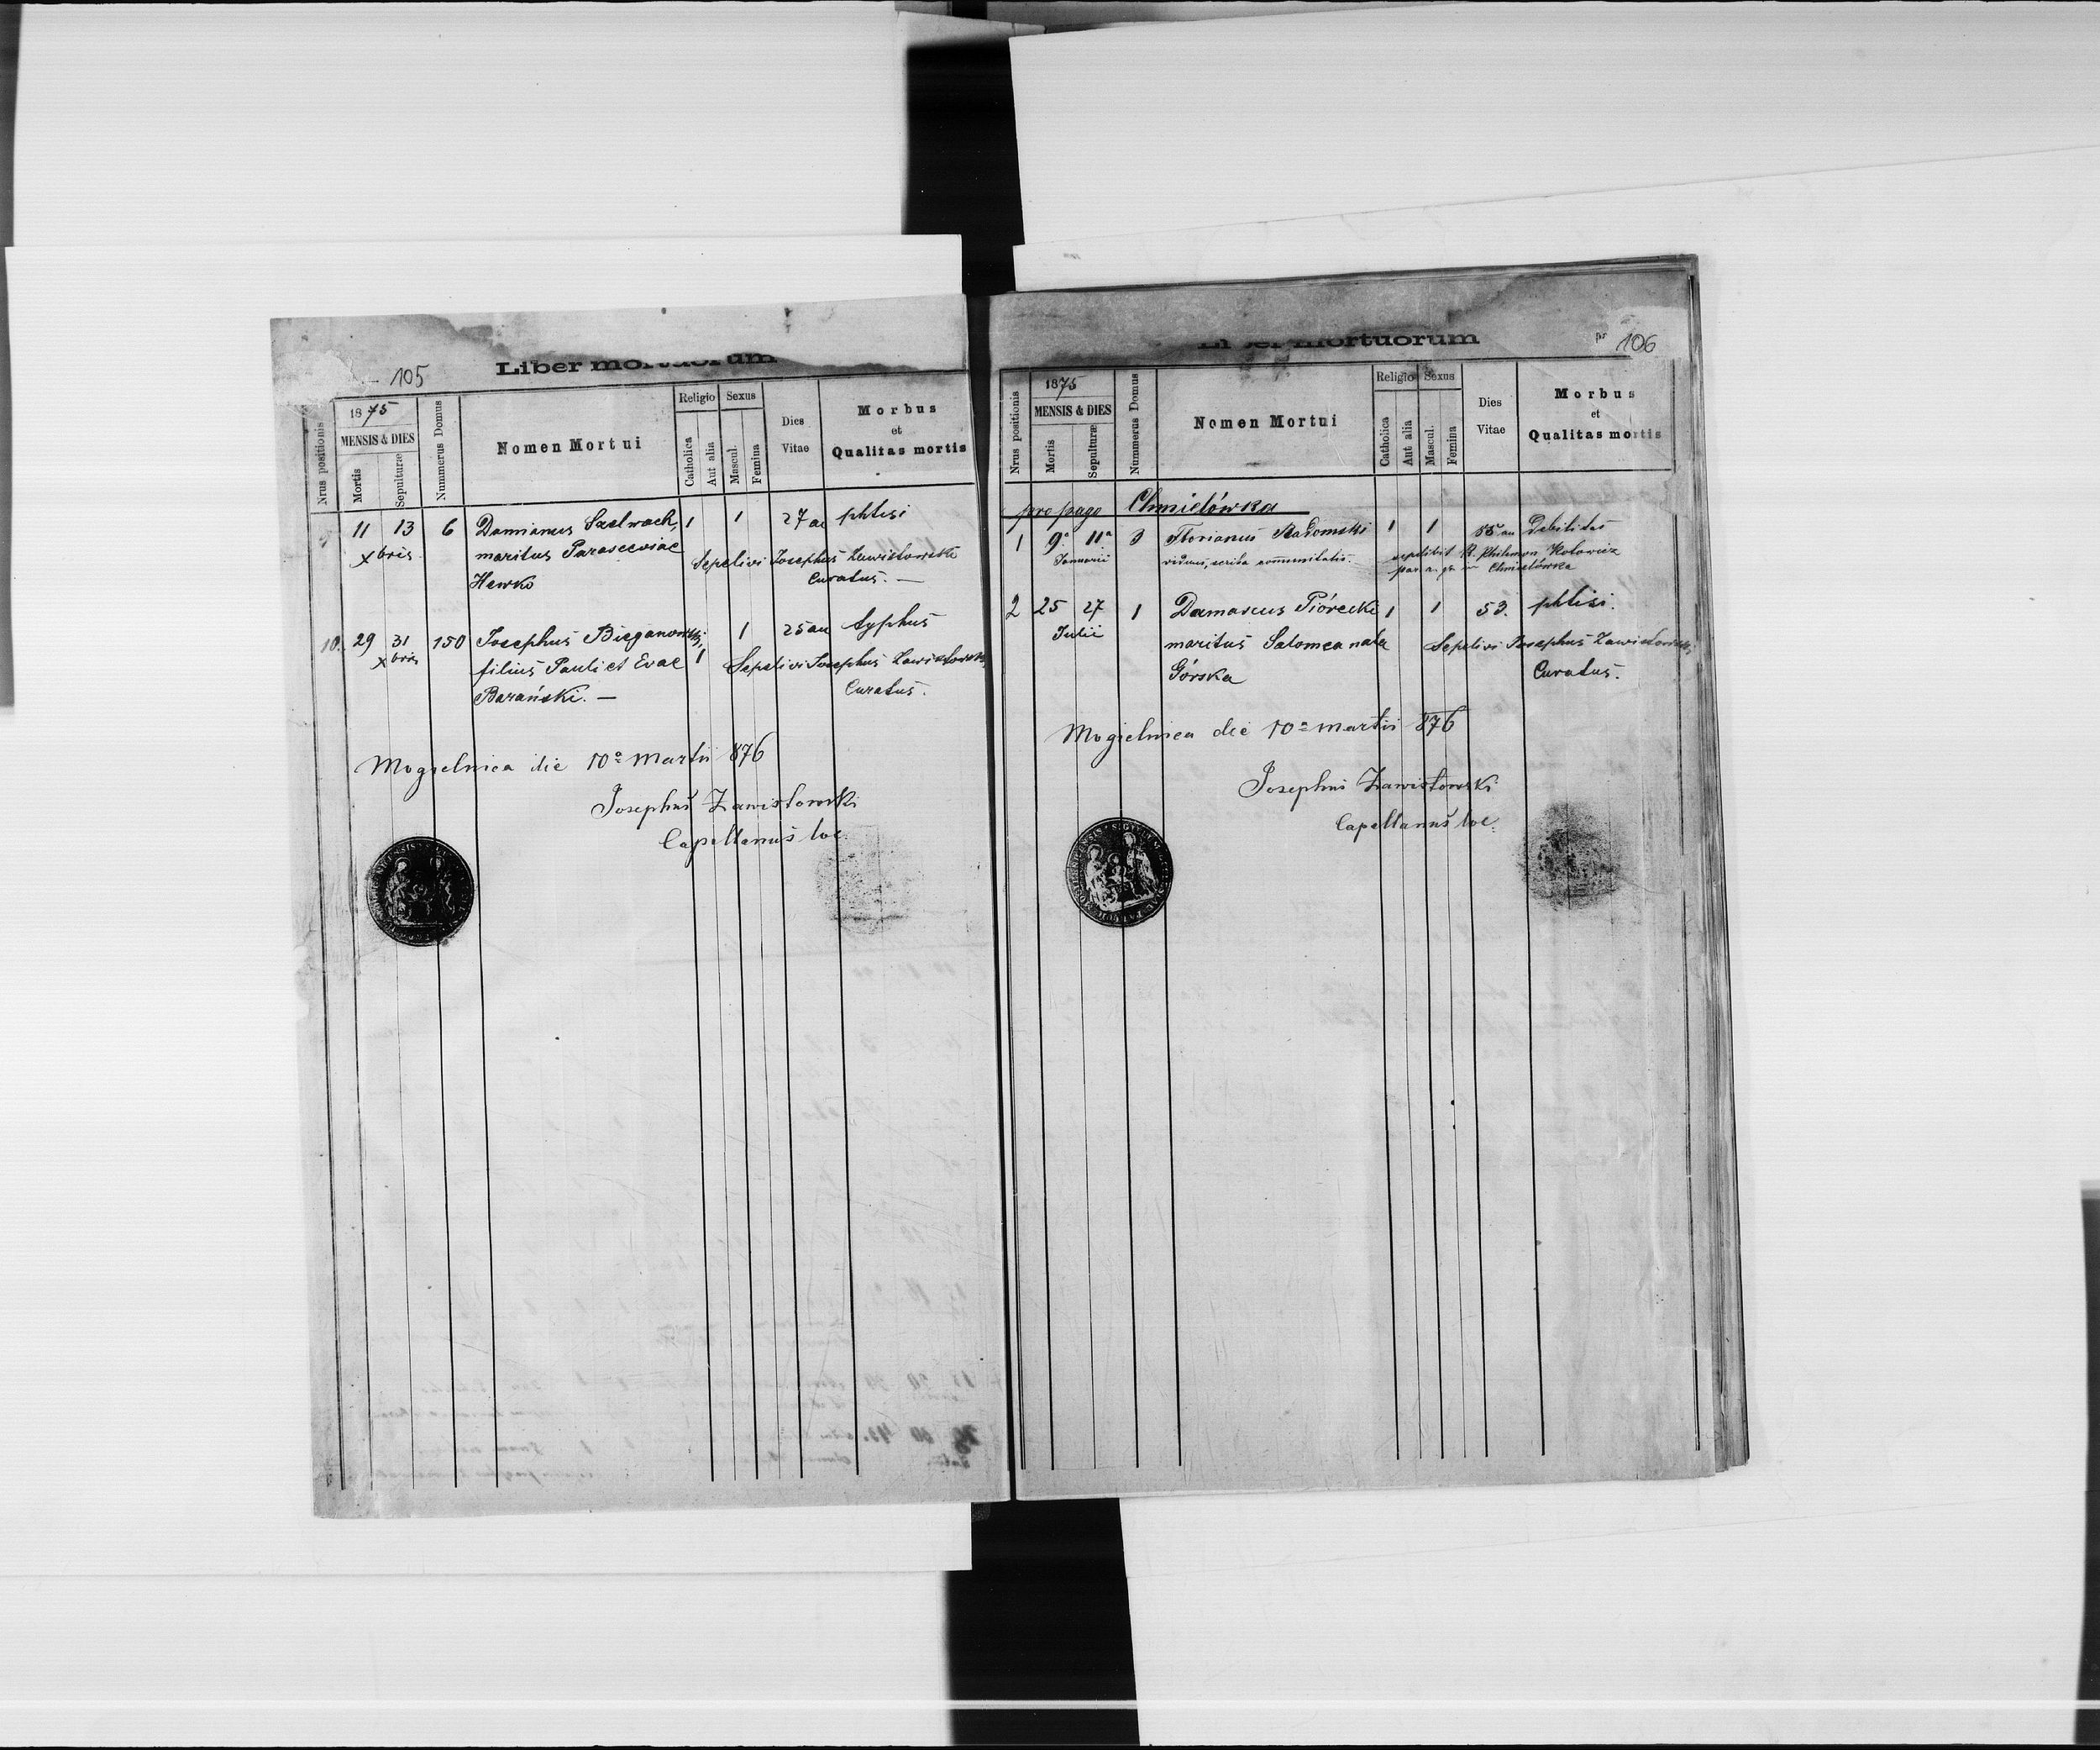 105
Liber mortuorum
Nrus positionis
1875
MENSIS & DIES
Mortis
Sepulturæ
Nummerus Domus
Nomen Mortui
Religio
Catholica
Aut alia
Sexus
Mascul.
Femina
Dies
Vitae
Morbus
et
Qualitas mortis
11 13 6 Damianus Szelwach, 1 1 27 an phtisi
xbris maritus Parascewiae Sepelivi Josephus Zawistowski
Hewko Curatus. —
10. 29 31 150 Josephus Bieganowski, 1 1 25 an typhus
xbris filius Pauli et Evae Sepelivi Josephus Zawistowski
Barański. — Curatus.
Mogielnica die 10a Martii 876
Josephus Zawistowski
Capellanus loc.
pr 106
Liber mortuorum
Nrus positionis
1875
MENSIS & DIES
Mortis
Sepulturæ
Nummerus Domus
Nomen Mortui
Religio
Catholica
Aut alia
Sexus
Mascul.
Femina
Dies
Vitae
Morbus
et
Qualitas mortis
pro pago Chmielówka
1 9a 11a 3 Florianus Radomski 1 1 55 an Debilitas
Januarii viduus, scriba communitatis. sepelivit R. Philemon Kotowicz
par. in Chmielówka
2 25 27 1 Damascus Piórecki 1 1 53. phtisi.
Julii maritus Salomea nata Sepelivi Josephus Zawistowski,
Górska Curatus.
Mogielnica die 10a martii 876
Josephus Zawistowski
Capellanus loc.